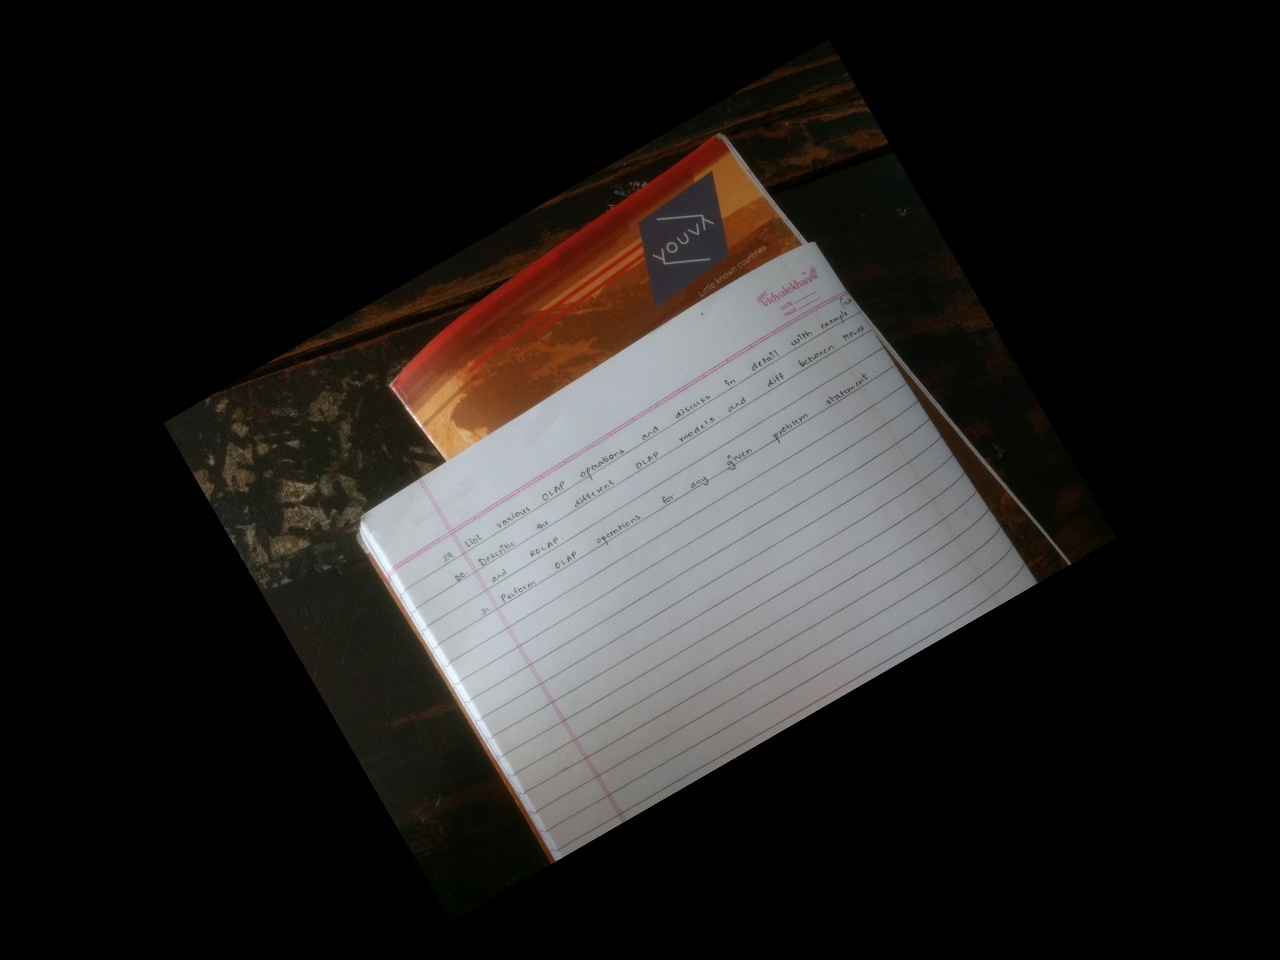 youva
Little known countries
Vidyalekhan
DATE
PAGE
29. List various OLAP operations and discuss in detail with example
30. Describe the different OLAP models. and diff between MOLAP
and ROLAP.
31. Perform OLAP operations for any given problem statement